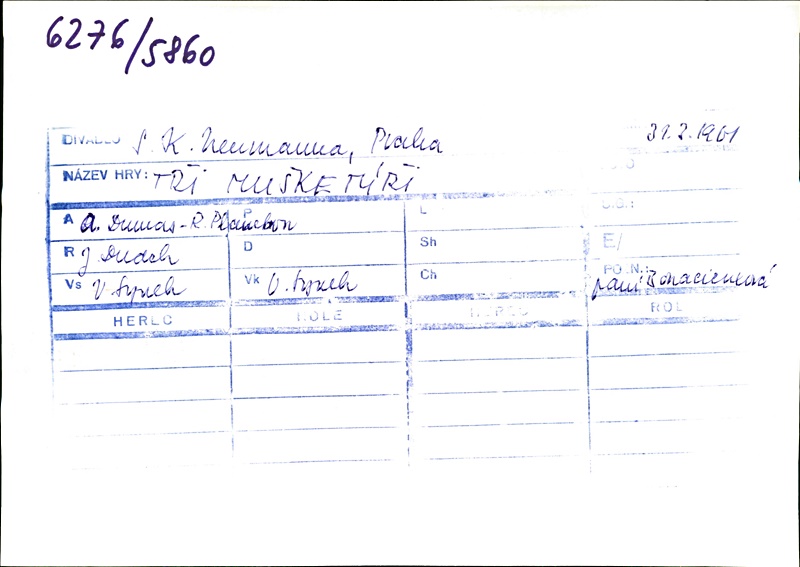 6276/5860
DIVADLO S. K. Neumanna, Praha 31.2.1961
NÁZEV HRY: TŘI MUŠKETÝŘI
A A. Dumas - R. Planchon P L
R J. Dudek D Sh E/
Vs V. Synek Vk V. Synek Ch POZN.: paní Bonacieuxová
HEREC ROLE HEREC ROL